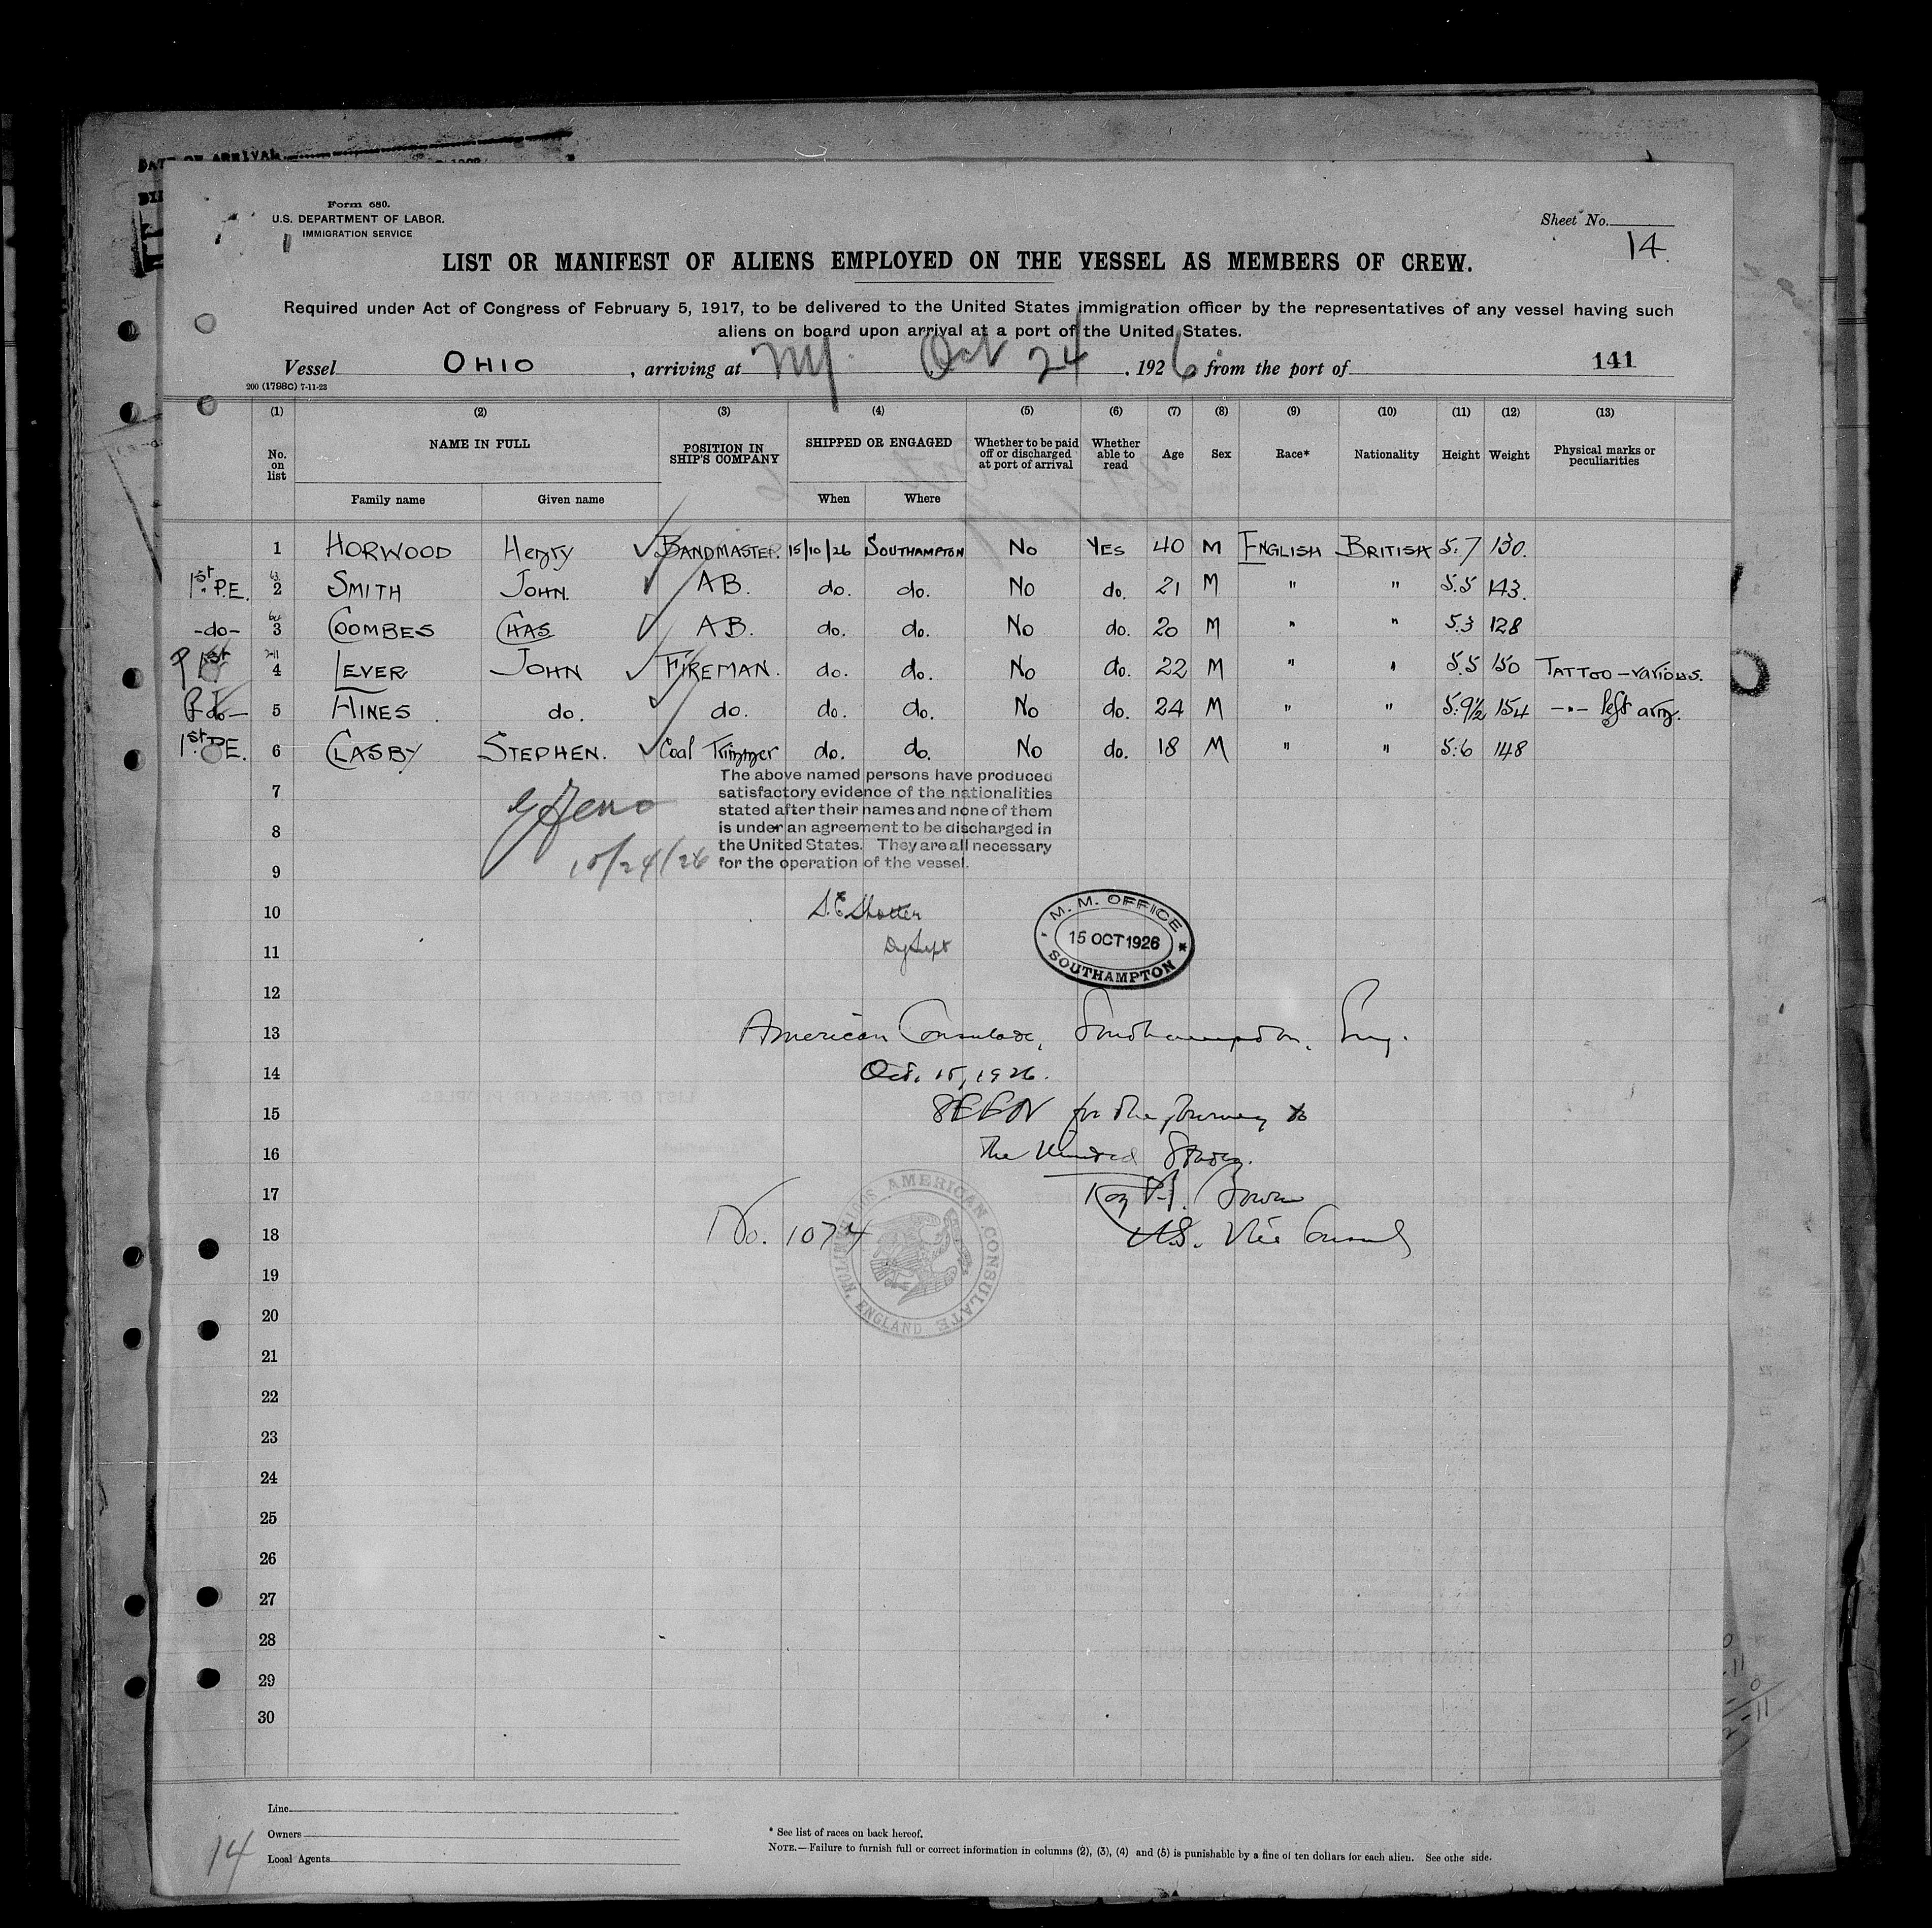 DATE OF ARRIVAL
Form 680.
U.S. DEPARTMENT OF LABOR.
IMMIGRATION SERVICE
Sheet No.
14.
LIST OR MANIFEST OF ALIENS EMPLOYED ON THE VESSEL AS MEMBERS OF CREW.
Required under Act of Congress of February 5, 1917, to be delivered to the United States immigration officer by the representatives of any vessel having such
aliens on board upon arrival at a port of the United States.
Vessel OHIO, arriving at NY. Oct 24, 1926 from the port of 141
200 (1798C) 7-11-23
(1) (2) (3) (4) (5) (6) (7) (8) (9) (10) (11) (12) (13)
No. on list NAME IN FULL POSITION IN SHIP'S COMPANY SHIPPED OR ENGAGED Whether to be paid off or discharged at port of arrival Whether able to read Age Sex Race* Nationality Height Weight Physical marks or peculiarities
Family name Given name When Where
1 HORWOOD Henry BANDMASTER. 15/10/26 SOUTHAMPTON No YES 40 M ENGLISH BRITISH 5.7 130.
1st P.E. 2 SMITH JOHN. A B. do. do. No do. 21 M " " 5.5 143.
-do- 3 COOMBES CHAS A B. do. do. No do. 20 M " " 5.3 128
1st 4 LEVER JOHN FIREMAN. do. do. No do. 22 M " " 5.5 150 TATTOO - various.
do- 5 HINES. do. do. do. do. No do. 24 M " " 5.9½ 154 -"- left arm.
1st P.E. 6 CLASBY STEPHEN. Coal Trimmer do. do. No do. 18 M " " 5.6 148
7
8
9
The above named persons have produced
satisfactory evidence of the nationalities
stated after their names and none of them
is under an agreement to be discharged in
the United States. They are all necessary
for the operation of the vessel.
10/24/26
10
11
M. M. OFFICE
15 OCT 1926
SOUTHAMPTON
12
13 American Consulate, Southampton, Eng.
14 Oct. 15, 1926.
15 SEEN for the journey to
16 the United States.
17
18 No. 1074 U.S. Vice Consul
AMERICAN CONSULATE
ENGLAND
19
20
21
22
23
24
25
26
27
28
29
30
Line
Owners
Local Agents
14
* See list of races on back hereof.
NOTE.—Failure to furnish full or correct information in columns (2), (3), (4) and (5) is punishable by a fine of ten dollars for each alien. See othe side.